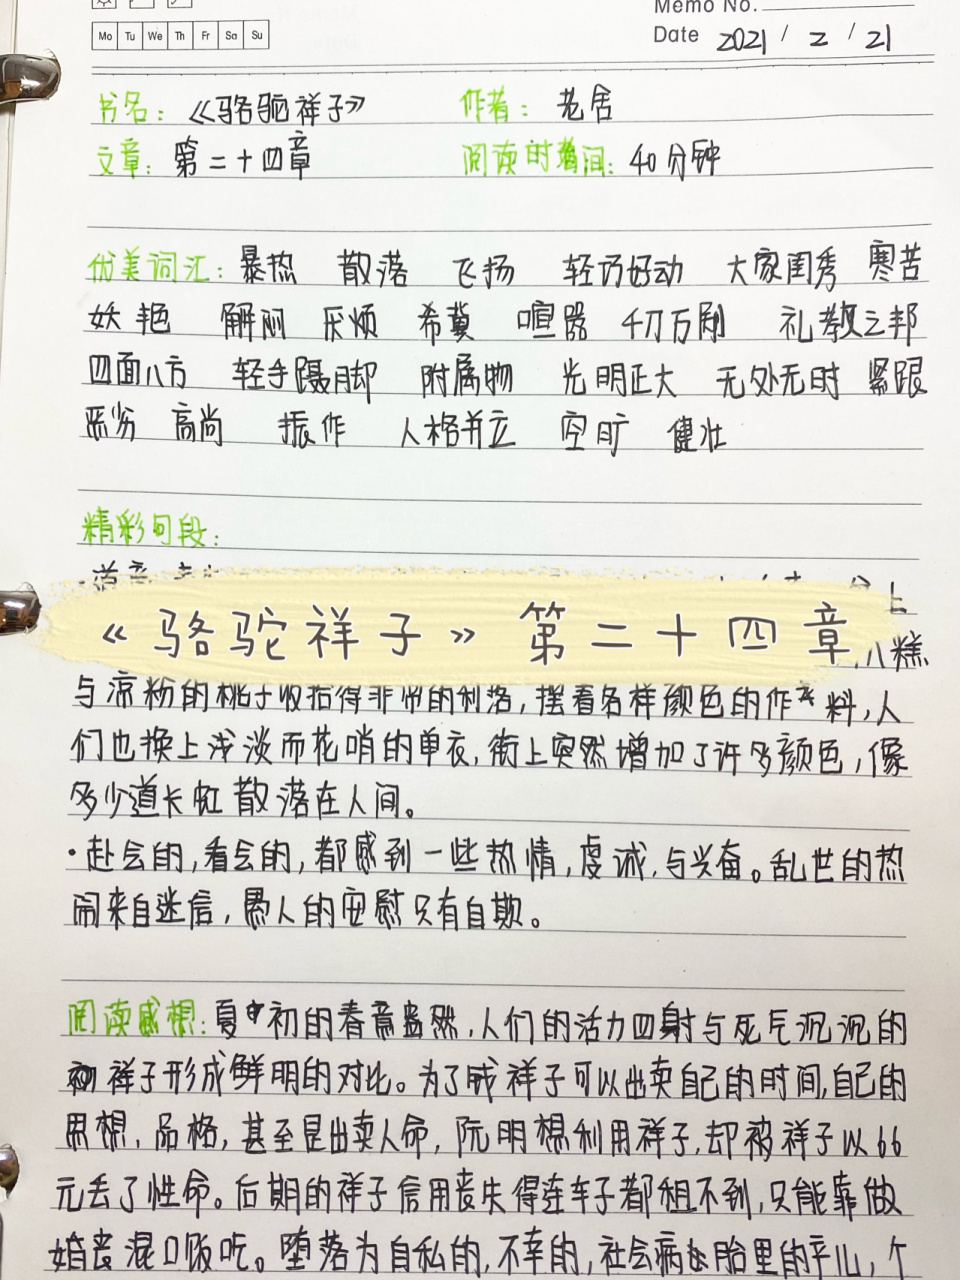 Memo No.
Mo Tu We Th Fr Sa Su
Date 2021 / 2 / 21
书名：《骆驼祥子》 作者：老舍
文章：第二十四章 阅读时间：40分钟
优美词汇：暴热 散落 飞扬 轻巧好动 大家闺秀 寒苦
妖艳 解闷 厌烦 希冀 喧嚣 千刀万剐 礼教之邦
四面八方 轻手蹑脚 附属物 光明正大 无处无时 紧跟
恶劣 高尚 振作 人格并立 空旷 健壮
精彩句段：
上
《骆驼祥子》第二十四章
糕
与凉粉的桃子收拾得非常的利落，摆着各样颜色的作料，人
们也换上浅淡而花哨的单衣，街上突然增加了许多颜色，像
多少道长虹散落在人间。
·赴会的，看会的，都感到一些热情，虔诚，与兴奋。乱世的热
闹来自迷信，愚人的安慰只有自欺。
阅读感想：夏初的春意盎然，人们的活力四射与死气沉沉的
祥子形成鲜明的对比。为了钱祥子可以出卖自己的时间，自己的
思想，品格，甚至是出卖人命，阮明想利用祥子，却被祥子以66
元丢了性命。后期的祥子信用丧失得连车子都租不到，只能靠做
婚丧混口饭吃。堕落为自私的，不幸的，社会病胎里的产儿，个